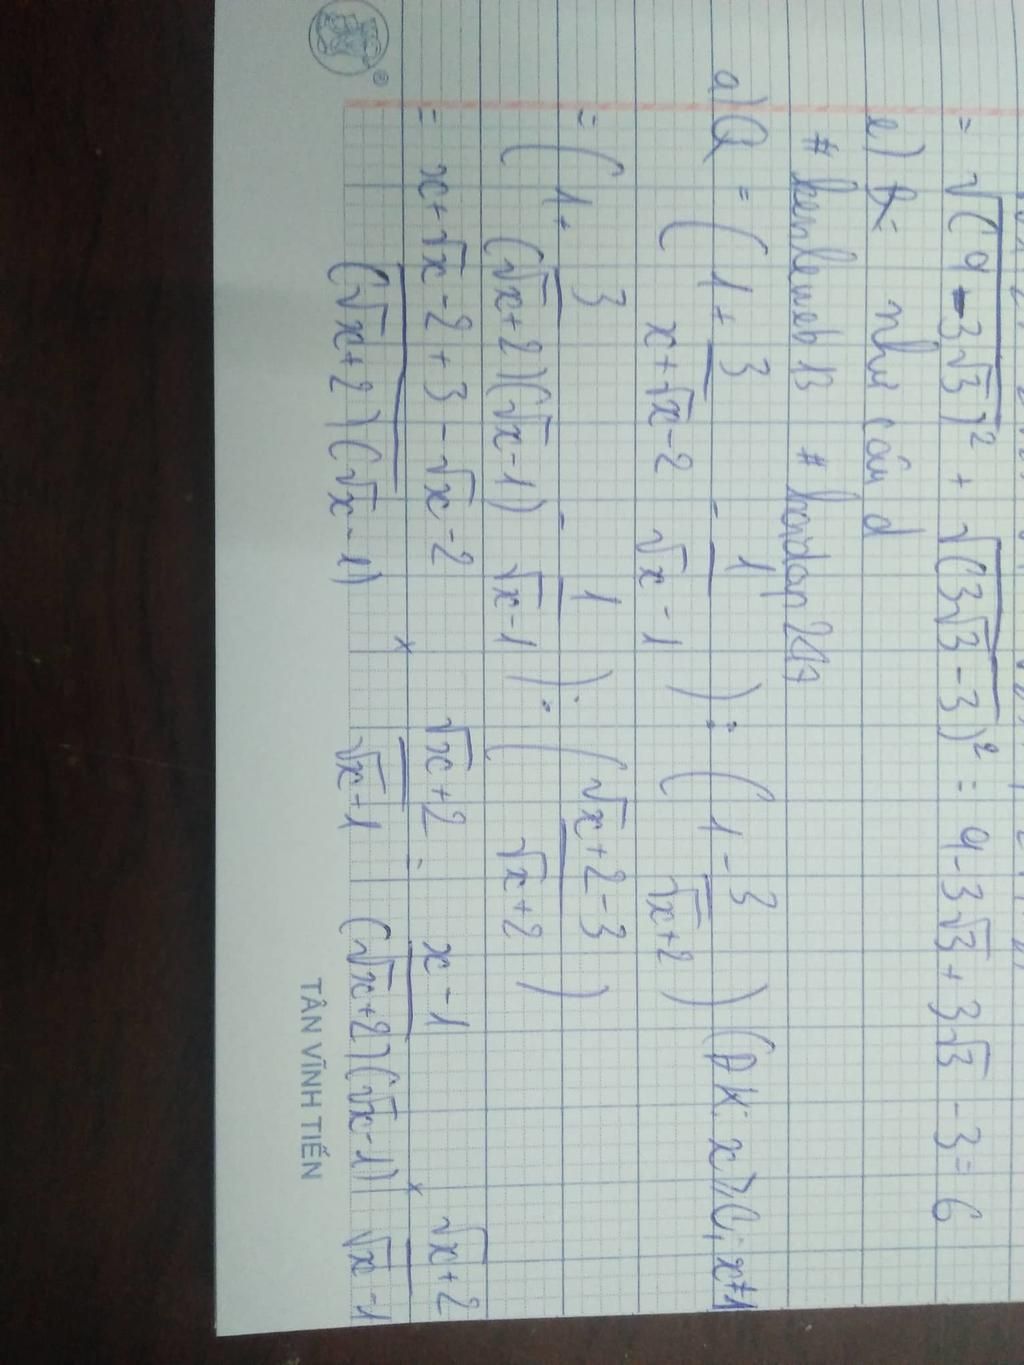 = √(9-3√3)² + √(3√3-3)² = 9-3√3+3√3-3=6
e) ĐK như câu d
# kenleweb 13 # hoidap247
a) Q = (1+ 3/(x+√x-2) - 1/(√x-1)) : (1 - 3/(√x+2)) (ĐK: x≥0; x≠1
= (1+ 3/((√x+2)(√x-1)) - 1/(√x-1)) : ((√x+2-3)/(√x+2))
= (x+√x-2+3-√x-2)/((√x+2)(√x-1)) × (√x+2)/(√x-1) = (x-1)/((√x+2)(√x-1)) × (√x+2)/(√x-1)
TÂN VĨNH TIẾN